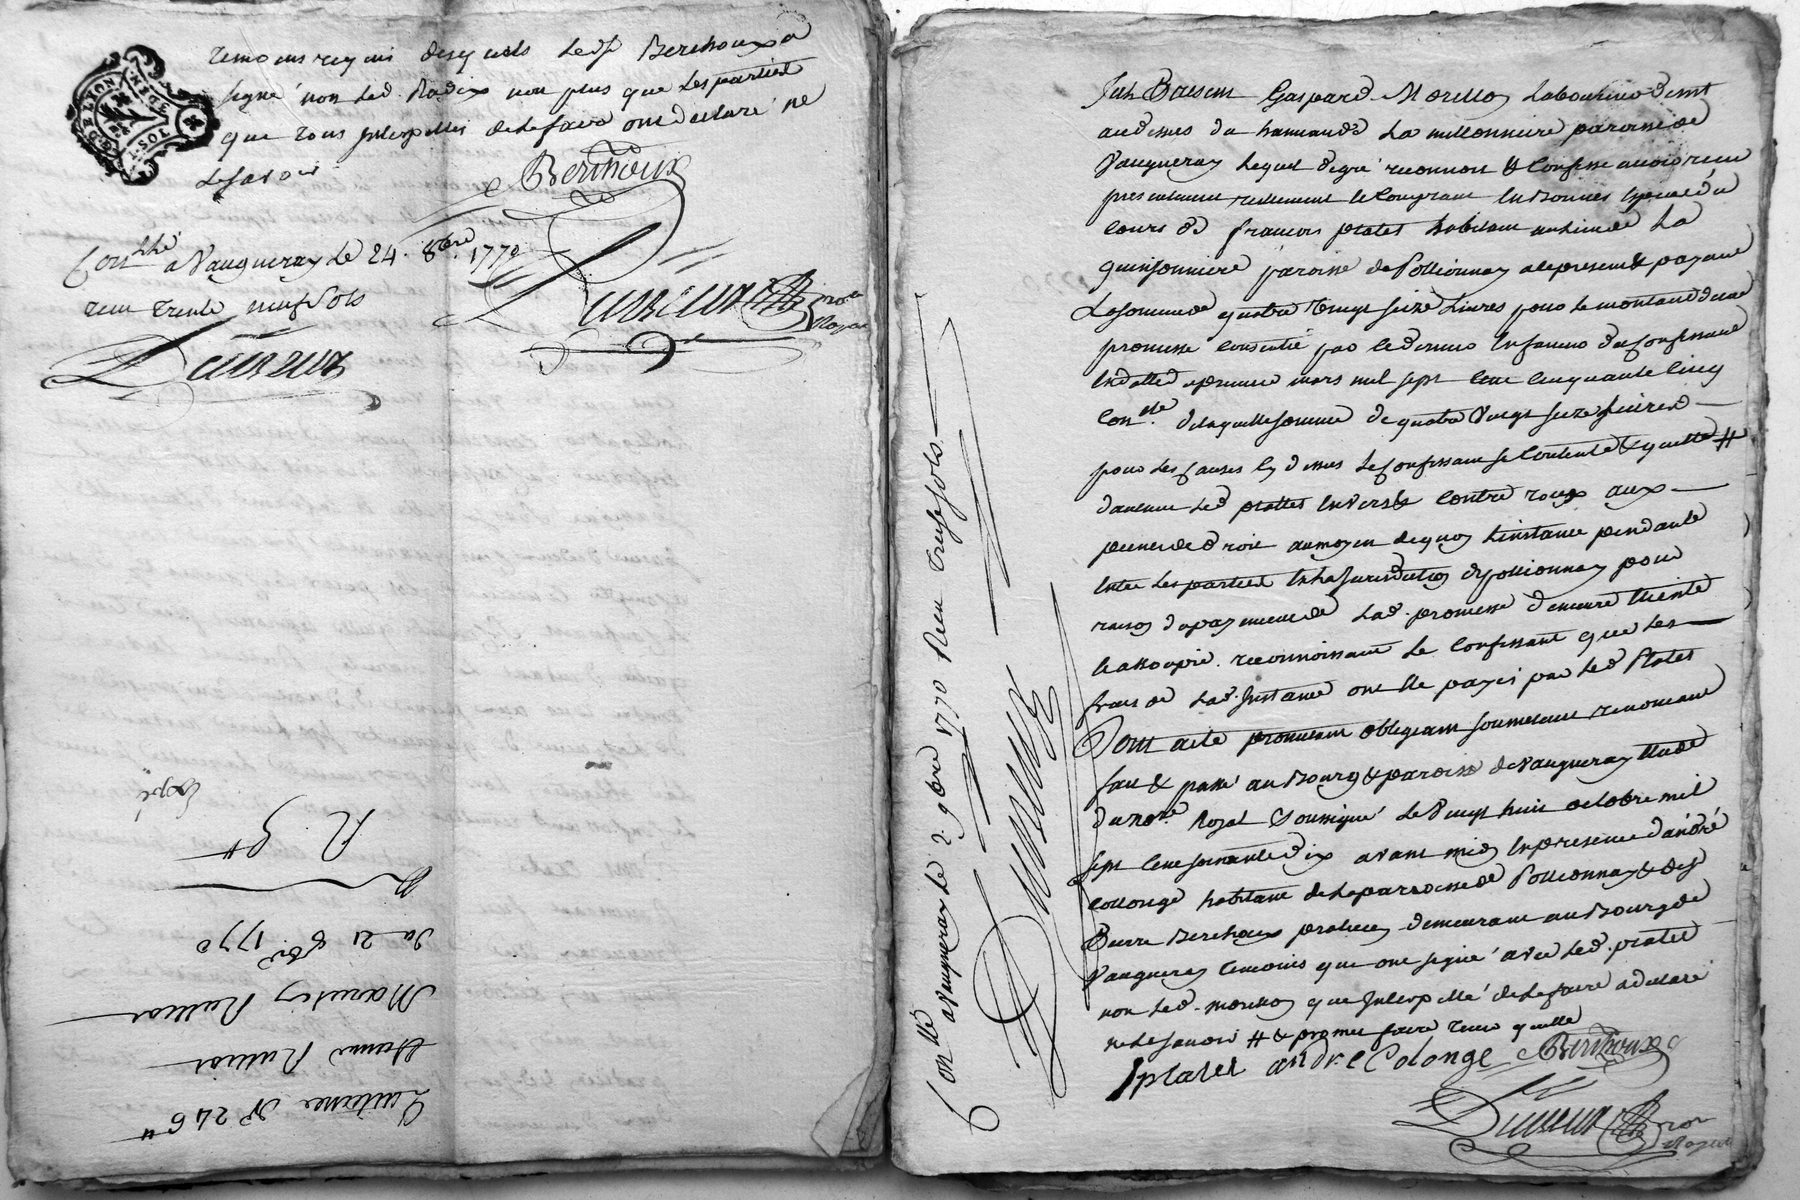 temoins requis desquels led Sr Berthoux a
signé non led. Radix non plus que les parties
que tous Interpellés de le faire ont declaré ne
le savoir
Berthoux
Conllé a Vaugneray le 24. 8bre. 1770
recu trente neuf sols
Royal
Expé
R. 9#
Du 21 8bre. 1770
Quittance N° 246#
Conllé a Vaugneray le 2. 9bre 1770 Recu treize sols
Gaspard Morellon laboureur demt
au dessus du hameau de la millonniere paroisse de
Vaugneray lequel de gré reconnoit & Confesse avoir recu
presentement reellement & Comptant En Bonnes Especes du
cours de francois platet habitant au lieu de La
guinsonniere paroisse de Pollionnay a ce present & payant
La somme de quatre vingt seize Livres pour le montant d'une
promesse Consentie par ce dernier En faveur du Confessant
En datte du premier mars mil sept Cent Cinquante Cinq
Conllé. de laquelle somme de quatre Vingt seize Livres
pour les Causes Cy dessus le Confessant se Contente & quitte #
led platet Envers & Contre tous aux
peines de droit au moyen de quoy L'instance pendante
Entre les parties En la Jurisdiction de Pollionnay pour
raison du payement de lad. promesse demeure Eteinte
& assoupie. reconnoissant le Confessant que les
frais de lad. Instance ont Eté payés par led Platet
Dont acte promettant obligeant soumettant renoncant
fait & passé au Bourg & paroisse de Vaugneray Etude
du nore. Royal soussigné le Vingt huit octobre mil
sept Cent soixante & dix avant midy En presence d'andré
Collonge habitant de la paroisse de Pollionnay & de Sr
Pierre Berthoux praticien demeurant au Bourg de
Vaugneray temoins que ont signé avec led. platet
non led. morellon que Interpellé de le faire a declaré
ne le savoir # & promet faire tenir quitte
f platet andre Colonge Berthoux
nore
Royal